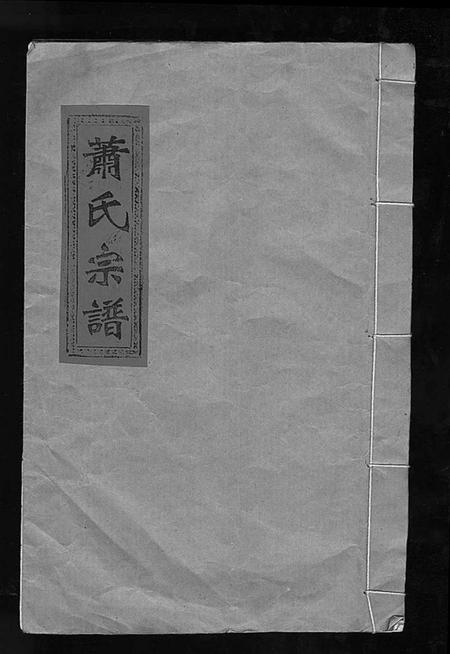 蕭氏宗譜